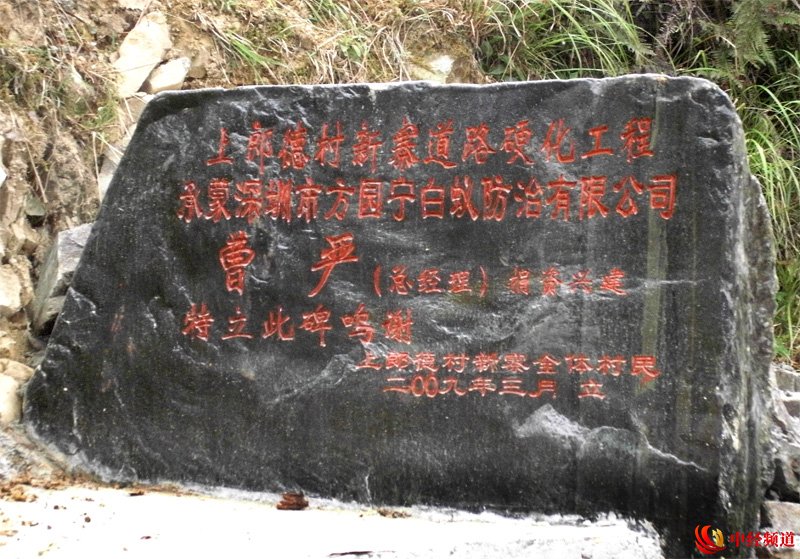 上郎德村新寨道路硬化工程
承蒙深圳市方园宁白蚁防治有限公司
曹 严（总经理）捐资兴建
特立此碑鸣谢
上郎德村新寨全体村民
二00九年三月 立
中经频道